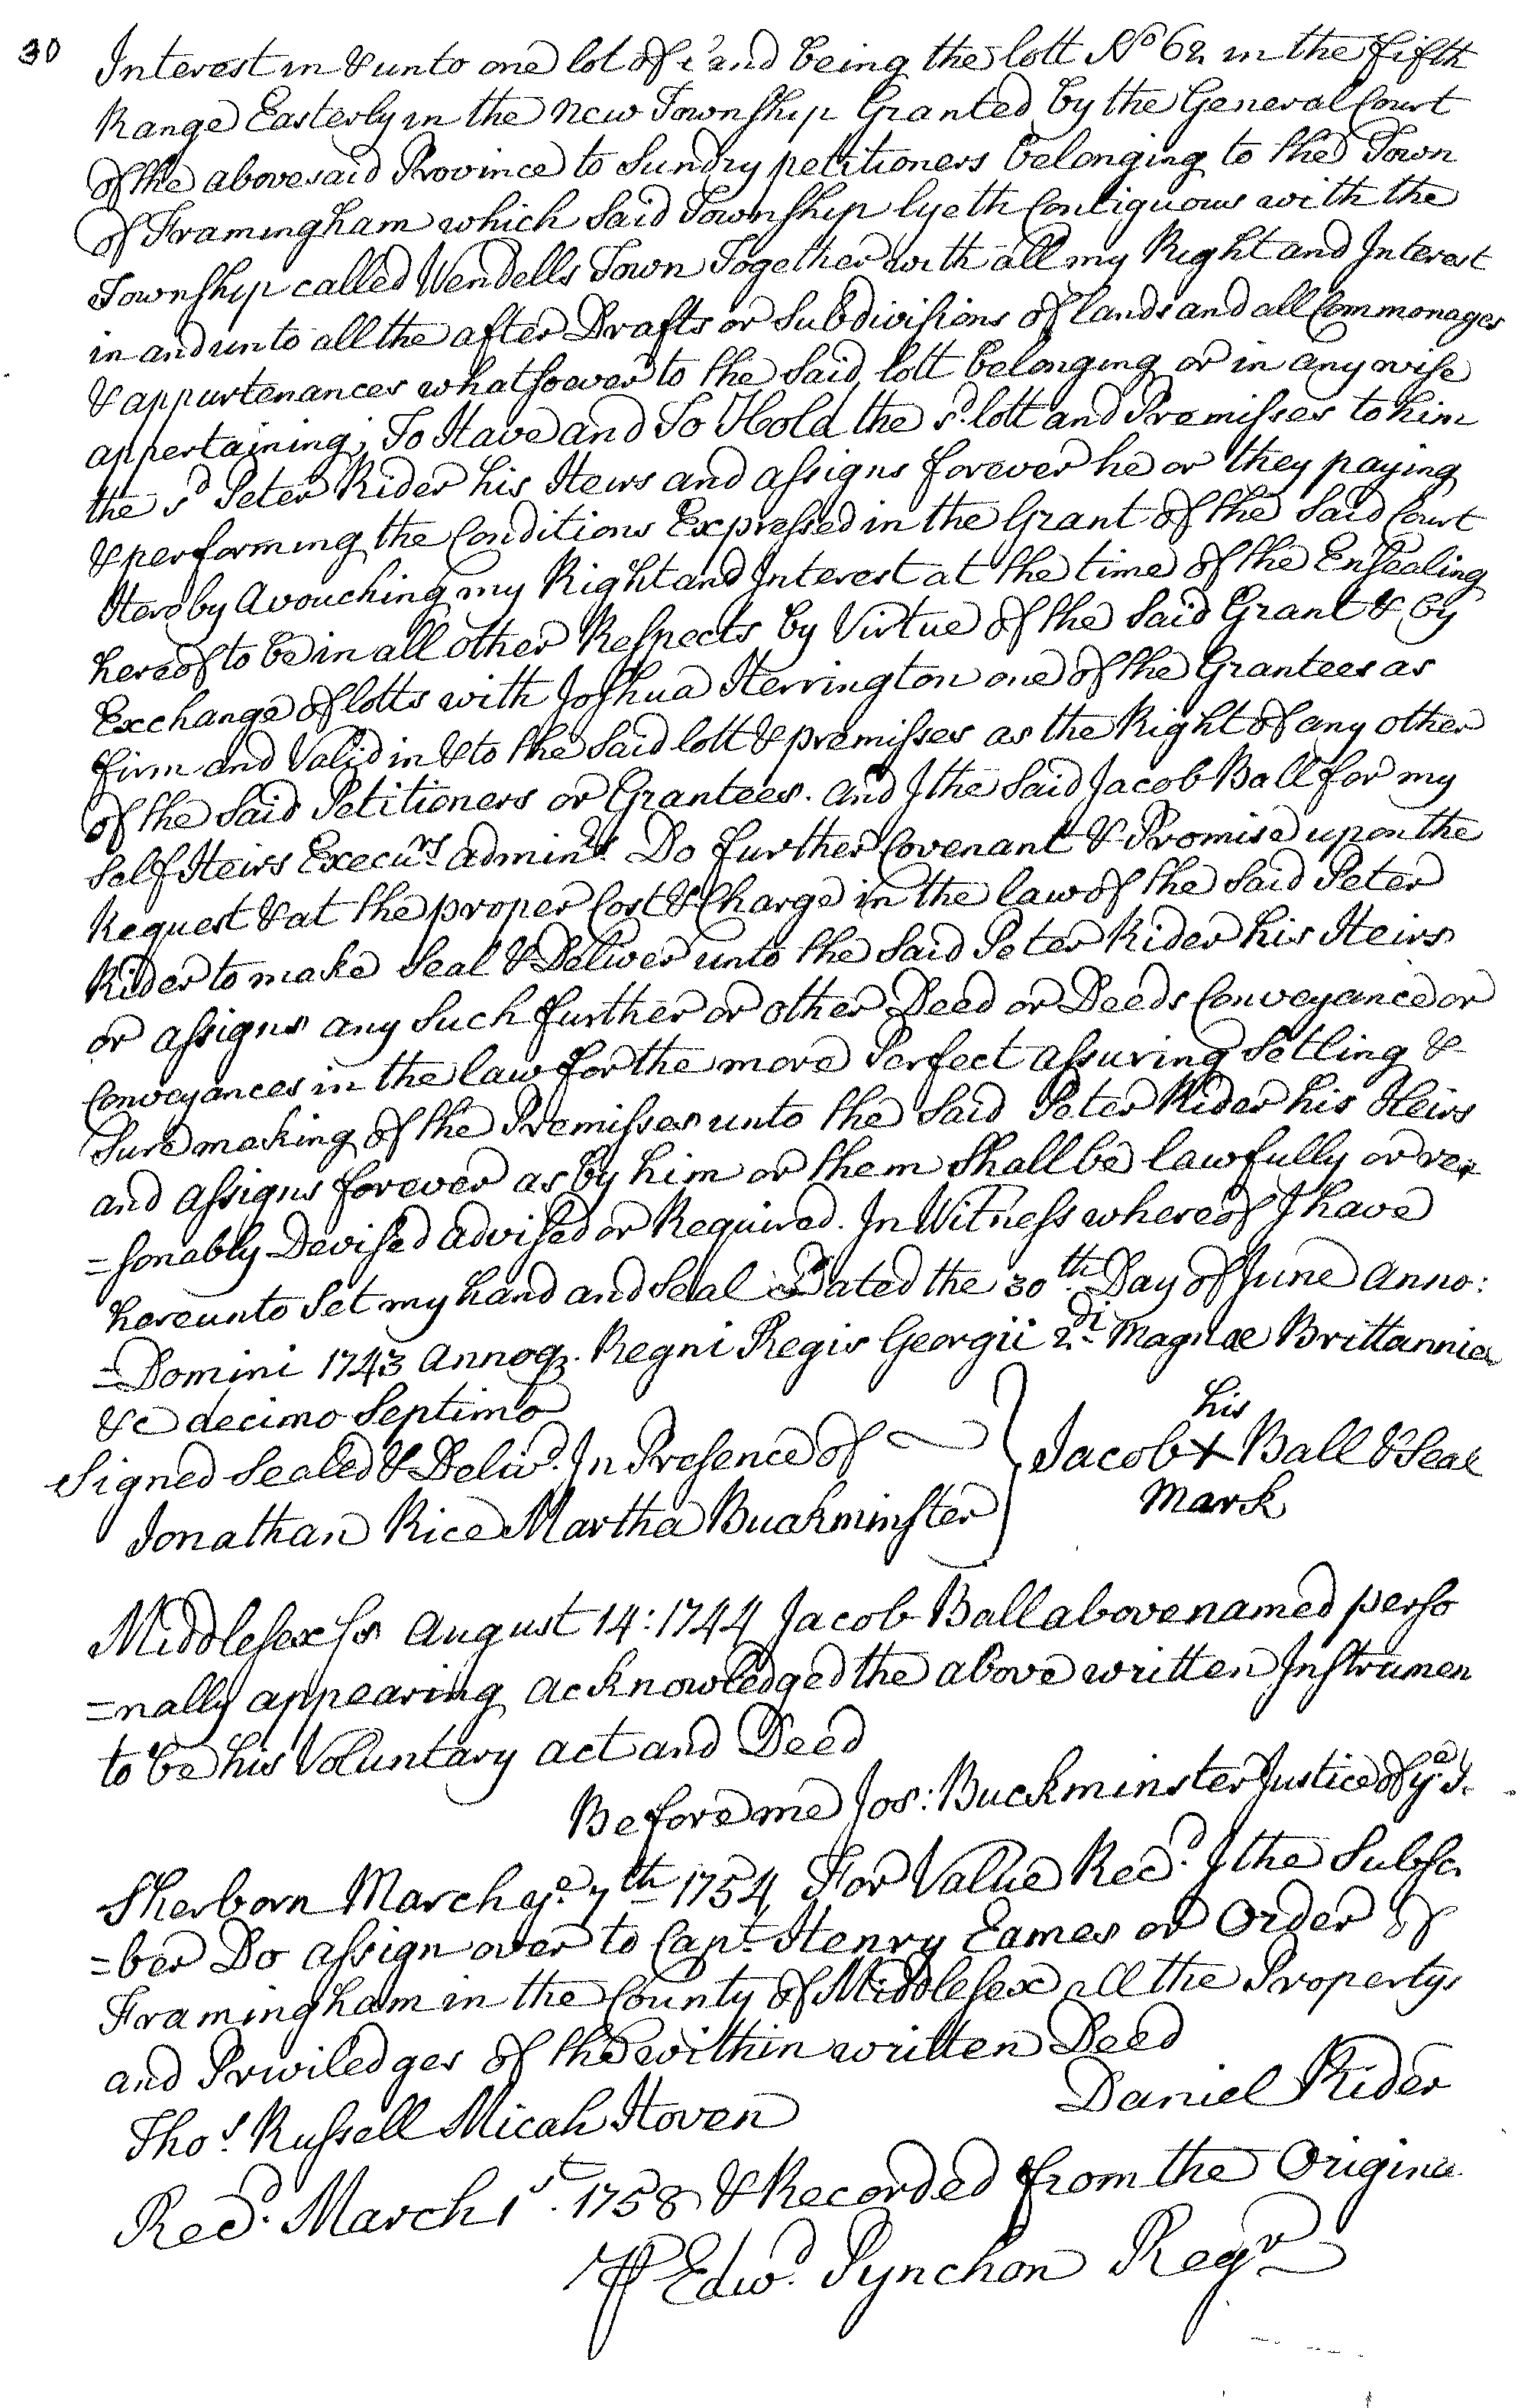 30
Interest in & unto one lot of Land being the lott No 62 in the fifth
Range Easterly in the new Township Granted by the General Court
of the abovesaid Province to Sundry petitioners belonging to the Town
of Framingham which Said Township lyeth Contiguous with the
Township called Wendells Town Together with all my Right and Interest
in and unto all the after Drafts or Subdivisions of lands and all Commonages
& appurtenances whatsoever to the Said lott belonging or in any wise
appertaining; To Have and To Hold the sd. lott and Premisses to him
the sd Peter Rider his Heirs and assigns forever he or they paying
& performing the Conditions Expressed in the Grant of the Said Court
Hereby Avouching my Right and Interest at the time of the Ensealing
hereof to be in all other Respects by Virtue of the Said Grant & by
Exchange of lotts with Joshua Herrington one of the Grantees as
firm and Valid in & to the Said lott & premisses as the Right of any other
of the Said Petitioners or Grantees. and I the Said Jacob Ball for my
Self Heirs Execurs adminrs. Do further Covenant & Promise upon the
Request & at the proper Cost & Charge in the law of the Said Peter
Rider to make Seal & Deliver unto the Said Peter Rider his Heirs
or assigns any Such further or other Deed or Deeds Conveyance or
Conveyances in the law for the more Perfect assuring Setling &
Sure making of the Premisses unto the Said Peter Rider his Heirs
and assigns forever as by him or them Shall be lawfully or rea
=sonably Devised advised or Required. In Witness whereof I have
hereunto Set my hand and Seal Dated the 30th. Day of June Anno:
=Domini 1743 Annoq. Regni Regis Georgii 2di. Magnæ Brittannia
&c decimo Septimo
Signed Sealed & Delivd. In Presence of
Jonathan Rice Martha Buckminster
his
Jacob X Ball & Seal
mark
Middlesex ss August 14: 1744 Jacob Ball above named perso
=nally appearing acknowledged the above written Instrumen
to be his Voluntary act and Deed
Before me Jos: Buckminster Justice of ye.
Sherborn March ye. 7th 1754 For Value Recd. I the Subscr
=ber Do assign over to Capt. Henry Eames or Order of
Framingham in the County of Middlesex all the Propertys
and Priviledges of the within written Deed
Daniel Rider
Thos. Russell Micah Hoven
Recd. March 1st. 1758 & Recorded from the Origina
P Edwd. Pynchon Regr